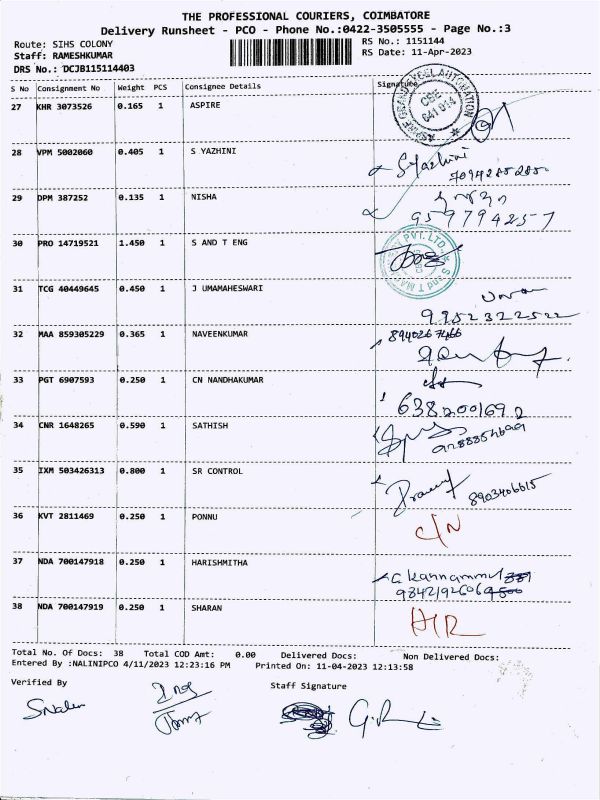 THE PROFESSIONAL COURIERS, COIMBATORE
Delivery Runsheet - PCO - Phone No.:0422-3505555 - Page No.:3
Route: SIHS COLONY
RS No.: 1151144
Staff: RAMESHKUMAR
RS Date: 11-Apr-2023
DRS No.: DCJB115114403
S No Consignment No Weight PCS Consignee Details Signature
27 KHR 3073526 0.165 1 ASPIRE
28 VPM 5002060 0.405 1 S YAZHINI
S Yazhini
29 DPM 387252 0.135 1 NISHA
9597794257
30 PRO 14719521 1.450 1 S AND T ENG
31 TCG 40449645 0.450 1 J UMAMAHESWARI
9952322522
32 MAA 859305229 0.365 1 NAVEENKUMAR
8940267466
33 PGT 6907593 0.250 1 CN NANDHAKUMAR
6382001692
34 CNR 1648265 0.590 1 SATHISH
35 IXM 503426313 0.800 1 SR CONTROL
8903406615
36 KVT 2811469 0.250 1 PONNU
C/N
37 NDA 700147918 0.250 1 HARISHMITHA
G Kannammal
38 NDA 700147919 0.250 1 SHARAN
Total No. Of Docs: 38 Total COD Amt: 0.00 Delivered Docs: Non Delivered Docs:
Entered By :NALINIPCO 4/11/2023 12:23:16 PM Printed On: 11-04-2023 12:13:58
Verified By
Staff Signature